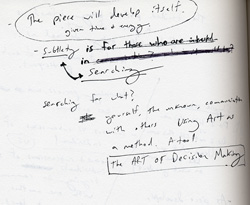 The piece will develop itself.
given time + energy
- Subtlety is for those who are
in
Searching
searching for what?
yourself, the unknown, connection
with others Using Art as
a method. A tool.
The ART of Decision Making